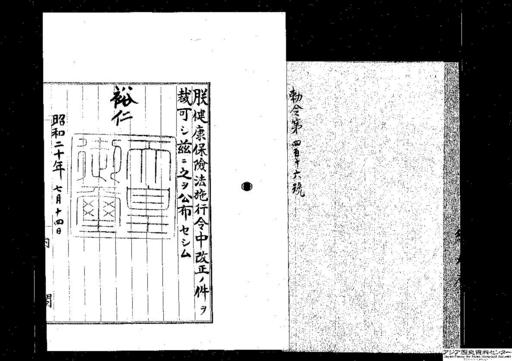 勅令第四百十六號
朕健康保險法施行令中改正ノ件ヲ
裁可シ茲ニ之ヲ公布セシム
裕仁
天皇御璽
昭和二十年七月十四日
内閣
アジア歴史資料センター